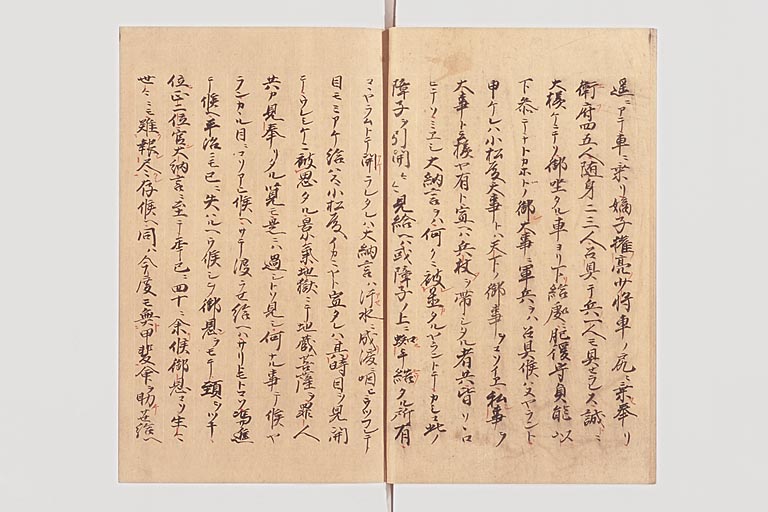 遥ニアテ車ニ乗リ嫡子権亮少将車ノ尻ニ乗奉リ
衛府四五人随身二三人召具テ兵一人モ具セラレス誠ニ
大様ケニテソ御坐タル車ヨリ下給処ニ肥後守貞能ツ
下参テナトカホトノ御大事ニ軍兵ヲハ召具候ハヌヤラント
申ケレハ小松殿大事トハ天下ノ御事ヲコソ云ヘ私事ヲ
大事ト云様ヤ有ト宣ヘハ兵杖ヲ帯シタル者共皆ソヽロ
ヒテソミエシ大納言ヲハ何クニ被置タルヤラントテカシコ此ノ
障子ヲ引開ヽヽ見給ヘハ或障子ノ上ニ蜘手結タル所有
コヽヤラムトテ開ラレタレハ大納言ハ汗水ニ成涙ニ咽ヒウツフシテ
目モミアケ給ハス小松殿イカニヤト宣タレハ其時目ヲ見開
テウレシケニ被思タル景気地獄ニテ地蔵菩薩ヲ罪人
共カ見奉リタルハ覧モ是ニハ過シトソ見シ何ナル事テ候ヤ
ランカヽル目ニアヒ候ヘハサテ渡ラセ給ヘハサリトモトコソ馮進
テ候ヘ平治ニモ已ニ失ハルヘウ候シヲ御恩ヲモテ頸ヲツキ
位正二位官大納言ニ至テ年已ニ四十ニ余候御恩コソ生ヽ
世ヽニモ難報尽存候ヘ同ハ今度モ無甲斐命ヲ助サセ給ヘ